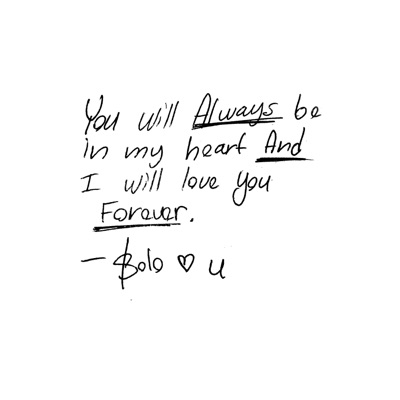 You will Always be
in my heart And
I will love you
Forever.
- Bolo ♡ u